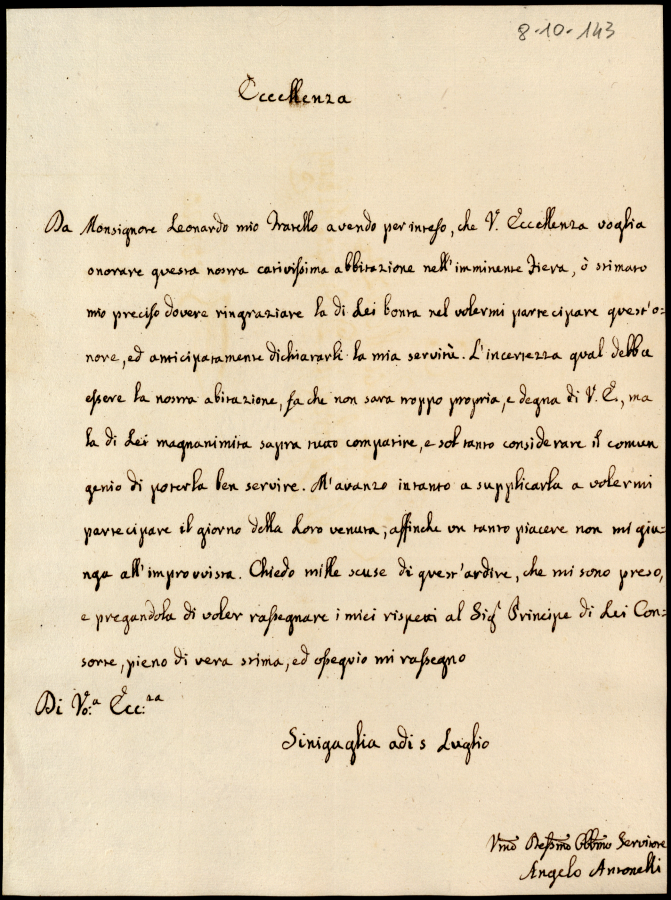 8-10-143
Eccellenza
Da Monsignore Leonardo mio Fratello avendo per inteso, che V. Eccellenza voglia
onorare questa nostra carivissima abbitazione nell'imminente Fiera, ò stimato
mio preciso dovere ringraziare la di Lei bonta nel volermi partecipare quest'o=
nore, ed anticipatamente dichiararli la mia servitù. L'incertezza qual debba
essere la nostra abitazione, fa che non sara troppo propria, e degna di V. E., ma
la di Lei magnanimita sapra tutto compatire, e soltanto considerare il comun
genio di poterla ben servire. M'avanzo intanto a supplicarla a volermi
partecipare il giorno della Loro venuta, affinche un tanto piacere non mi giu=
nga all'improvvista. Chiedo mille scuse di quest'ardire, che mi sono preso,
e pregandola di voler rassegnare i miei rispetti al Sig.r Principe di Lei Con=
sorte, pieno di vera stima, ed ossequio mi rassegno
Di Vo.a Ecc.za
Sinigaglia adi 5 Luglio
Umo Devmo Obbmo Servitore
Angelo Antonelli